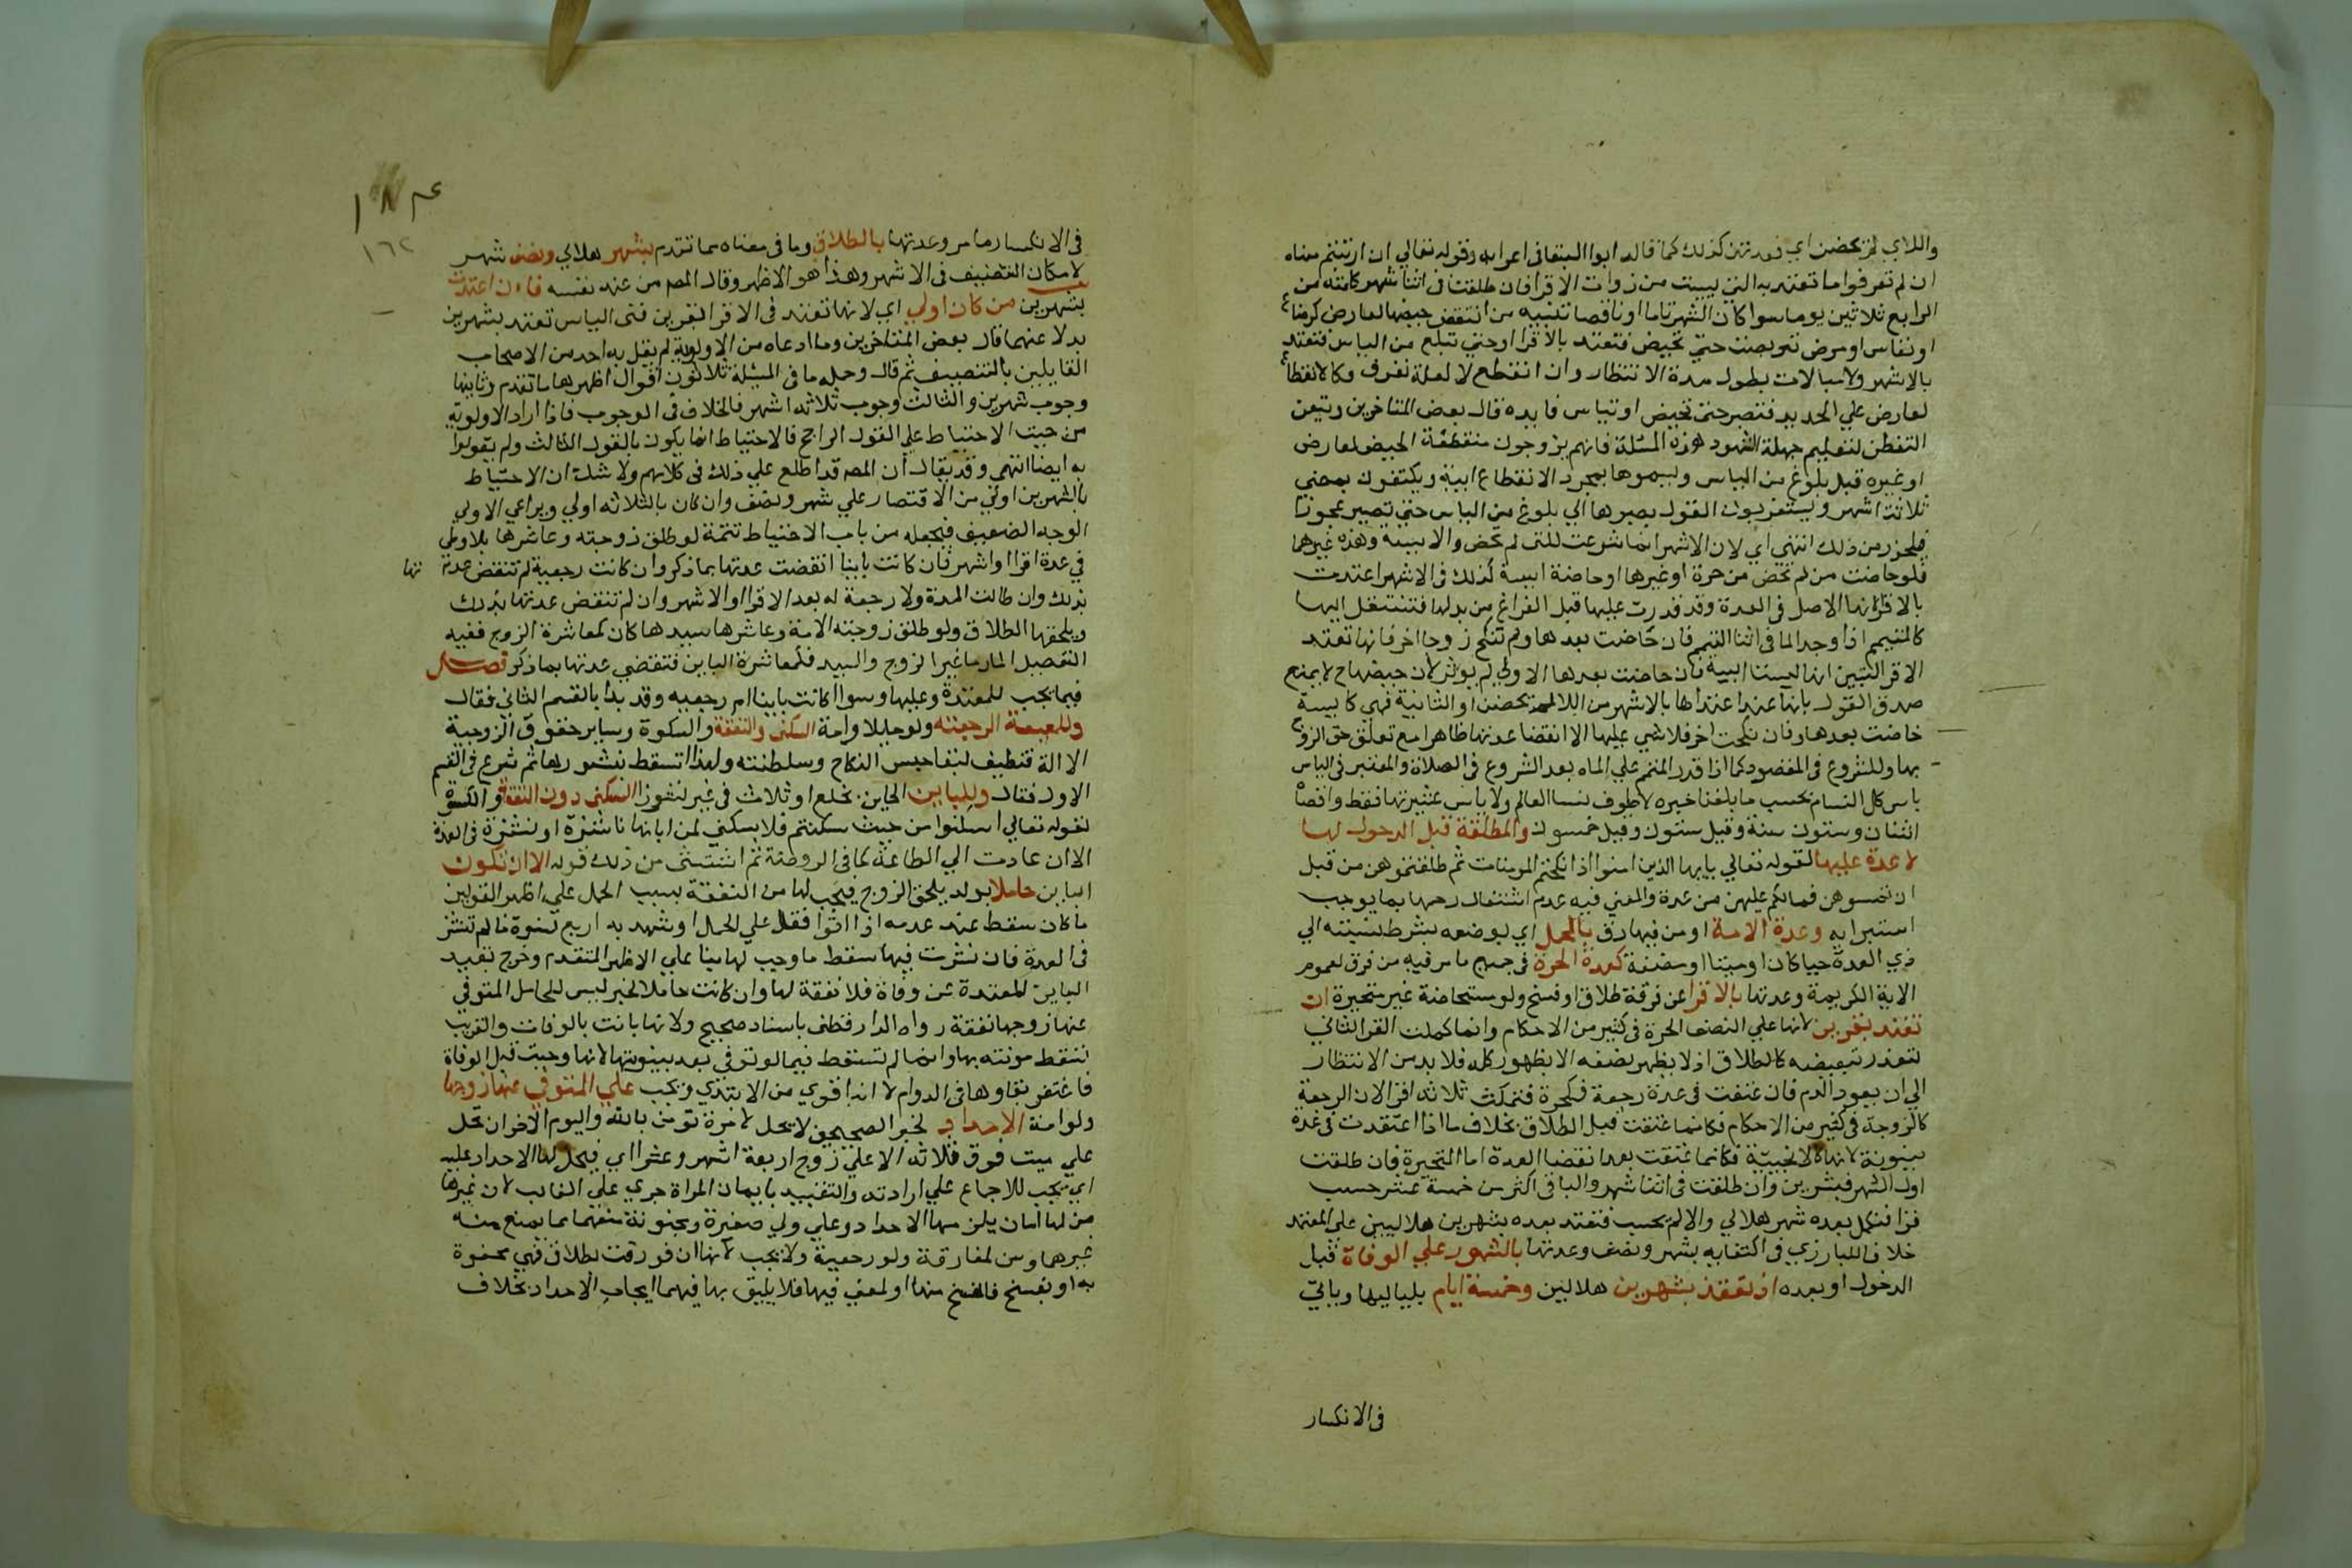 واللاي لم يحضن اي فعدتهن كذلك كما قاله ابوا البقا في اعرابه وقوله تعالي ان ارتبتم معناه
ان لم تعرفوا ما تعتد به التي يست من ذوات الاقرا فان طلقت في اثنا شهر كملته من
الرابع ثلاثين يوما سوا كان الشهر تاما او ناقصا تنبيه من انقطع حيضها لعارض كرضاع
او نفاس او مرض تربصت حتي تحيض فتعتد بالاقرا او حتي تبلغ سن الياس فتعتد
بالاشهر ولا مبالات بطول مدة الانتظار وان انقطع لا لعلة تعرف فكالانقطاع
لعارض علي الجديد فتصبر حتي تحيض او تياس فايده قال بعض المتاخرين ويتعين
التفطن لتعليم جهلة الشهود هذه المسئلة فانهم يزوجون منقطعة الحيض لعارض
او غيره قبل بلوغ سن الياس ويسموها بمجرد الانقطاع ايسة ويكتفون بمضي
ثلاثة اشهر ويستغربون القول بصبرها الي بلوغ سن الياس حتي تصير عجوزا
فليحذر من ذلك انتهي اي لان الاشهر انما شرعت للتي لم تحض والايسة وهذه غيرهما
فلو حاضت من لم تحض من حرة او غيرها او حاضة ايسة كذلك في الاشهر اعتدت
بالاقرا لانها الاصل في العدة وقد قدرت عليها قبل الفراغ من بدلها فتنتقل اليها
كالمتيمم اذا وجد الما في اثنا التيمم فان حاضت بعدها ولم تنكح زوجا اخر فانها تعتد
الاقرا لتبين انها ليست ايسة فان حاضت بعدها الاولي لم يوثر لان حيضها ح لا يمنع
صدق القول بانها عند اعتدادها بالاشهر من اللا لم يحضن او الثانية فهي كايسة
حاضت بعدها وفان نكحت اخر فلا شي عليها الا انقضا عدتها ظاهرا مع تعلق حق الزوج
بها وللشروع في المقصود كما اذا قدر المتيمم علي الماء بعد الشروع في الصلاة والمعتبر في الياس
ياس كل النسا بحسب ما بلغنا خبره لا طوف نسا العالم ولا ياس عشيرتها فقط واقصاه
اثنان وستون سنة وقيل ستون وقيل خمسون والمطلقة قبل الدخول لها
لا عدة عليها لقوله تعالي يايها الذين امنوا اذا نكحتم المومنات ثم طلقتموهن من قبل
ان تمسوهن فما لكم عليهن من عدة والمعني فيه عدم اشتغال رحمها بما يوجب
استبرايه وعدة الامة او من فيها رق بالحمل اي بوضعه بشرط نسبته الي
ذي العدة حيا كان او ميتا او مضغة كعدة الحرة في جميع ما مر فيه من فرق لعموم
الاية الكريمة وعدتها بالاقرا عن فرقة طلاق او فسخ ولو مستحاضة غير متحيرة ان
تعتد بقرين لانها علي النصف الحرة في كثير من الاحكام وانما كملت القر الثاني
لتعذر تبعيضه كالطلاق اذ لا يظهر نصفه الا بظهور كله فلا بد من الانتظار
الي ان يعود الدم فان عتقت في عدة رجعة فكحرة فتمكث ثلاثة اقرا لان الرجعة
كالزوجة في كثير من الاحكام فكانما عتقت قبل الطلاق بخلاف ما اذا اعتقدت في عدة
بينونة لانها كالاجنبية فكانما عتقت بعد انقضا العدة اما المتحيرة فان طلقت
اول الشهر فبشهرين وان طلقت في اثنا شهر والباقي اكثر من خمسة عشر حسب
قرا فتكمل بعده شهر هلالي والا لم يحسب فتعتد بعده بشهرين هلاليين علي المعتمد
خلافا للبارزي في اكتفايه بشهر ونصف وعدتها بالشهور علي الوفاة قبل
الدخول او بعده ان تعتد بشهرين هلالين وخمسة ايام بلياليها وياتي
في الانكسار
١٦٢
في الانكسار ما مر وعدتها بالطلاق وما في معناه مما تقدم بشهر هلالي ونصف شهر
لامكان التنصيف في الاشهر وهذا هو الاظهر وقال المصم من عند نفسه فان اعتدت
بشهرين من كان اولي اي لانها تعتد في الاقرا بقرين فتي الياس تعتد بشهرين
بدلا عنهما قال بعض المتاخرين وما ادعاه من الاولوية لم يقل به احد من الاصحاب
القايلين بالتنصيف ثم قال وجملة ما في المسئلة ثلاثة اقوال اظهرها ما تقدم وثانيها
وجوب شهرين والثالث وجوب ثلاثة اشهر فالخلاف في الوجوب فاذا اراد الاولوية
من حيث الاحتياط علي القول الراجح فالاحتياط انما يكون بالقول الثالث ولم يقولوا
به ايضا انتهي وقد يقال ان المصه قد اطلع علي ذلك في كلامهم ولا شك ان الاحتياط
بالشهرين اولي من الاقتصار علي شهر ونصف وان كان بالثلاثة اولي ويراعي الاولي
الوجه الضعيف فيجعله من باب الاحتياط تتمة لو طلق زوجته وعاشرها بلا وطي
في عدة اقرا او اشهر فان كانت باينا انقضت عدتها بما ذكر وان كانت رجعية لم تنقض عدتها
بذلك وان طالت المدة ولا رجعة له بعد الاقرا او الاشهر وان لم تنقض عدتها بذلك
ويلحقها الطلاق ولو طلق زوجته الامة وعاشرها سيدها كان كمعاشرة الزوج ففيه
التفصيل المار ما غير الزوج والسيد فكمعاشرة الباين فتنقضي عدتها بما ذكر فصل
فيما يجب للمعتدة وعليها وسوا اكانت باينا ام رجعيه وقد بدا بالقسم الثاني فقال
وللمعتدة الرجعية ولو حايلا وامة السكني والنفقة والكسوة وساير حقوق الزوجية
الا الة تنظيف لبقا حبس النكاح وسلطنته ولهذا تسقط بنشوزها ثم شرع في القسم
الاول فقال وللباين الحاين بخلع او ثلاث في غير نشوز السكني دون النفقة والكسوة
لقوله تعالي اسكنوهن من حيث سكنتم فلا سكني لمن ابانها ناشزة او نشزة في العدة
الا ان عادت الي الطاعة كما في الروضة ثم استثني من ذلك قوله الا ان تكون
الباين حاملا بولد يلحق الزوج فيجب لها من النفقة بسبب الحمل علي اظهر القولين
ما كان سقط عند عدمه اذا توافقا علي الحمل او شهد به اربع نسوة ما لم تنشز
في العدة فان نشزت فيها سقط ما وجب لها بنا علي الاظهر المتقدم وخرج بقيد
الباين المعتدة عن وفاة فلا نفقة لها وان كانت حاملا لخبر ليس للحامل المتوفي
عنها زوجها نفقة رواه الدارقطني باسناد صحيح ولانها بانت بالوفات والقريب
تسقط مونته بها وانما لم تسقط فيما لو توفي بعد بينونتها لانها وجبت قبل الوفاة
فاغتفر بقاوها في الدوام لانه اقوي من الابتدي ويجب علي المتوفي عنها زوجها
ولو امة الاحداد لخبر الصحيحين لا يحل لامرة تومن بالله واليوم الاخر ان تحد
علي ميت فوق ثلاثة الا علي زوج اربعة اشهر وعشرا اي فيحل لها الاحداد عليه
اي يجب للاجماع علي ارادته والتقييد بايمان المراة جري علي الغالب لان غيرها
من لها امان يلزمها الاحداد وعلي ولي صغيرة ومجنونة منعهما مما يمنع منه
غيرهما وسن لمفارقة ولو رجعية ولا يجب لانها ان فورقت بطلاق فهي مجفوة
به او بفسخ فالفسخ منها او لمعني فيها فلا يليق بها فيهما ايجاب الاحداد بخلاف